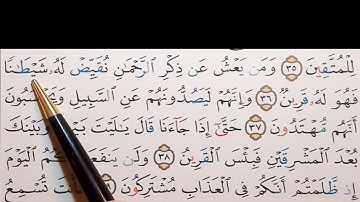 لِلْمُتَّقِينَ ﴿٣٥﴾ وَمَن يَعْشُ عَن ذِكْرِ الرَّحْمَٰنِ نُقَيِّضْ لَهُ شَيْطَانًا
فَهُوَ لَهُ قَرِينٌ ﴿٣٦﴾ وَإِنَّهُمْ لَيَصُدُّونَهُمْ عَنِ السَّبِيلِ وَيَحْسَبُونَ
أَنَّهُم مُّهْتَدُونَ ﴿٣٧﴾ حَتَّىٰ إِذَا جَاءَنَا قَالَ يَا لَيْتَ بَيْنِي وَبَيْنَكَ
بُعْدَ الْمَشْرِقَيْنِ فَبِئْسَ الْقَرِينُ ﴿٣٨﴾ وَلَن يَنفَعَكُمُ الْيَوْمَ
إِذ ظَّلَمْتُمْ أَنَّكُمْ فِي الْعَذَابِ مُشْتَرِكُونَ تُسْمِعُ